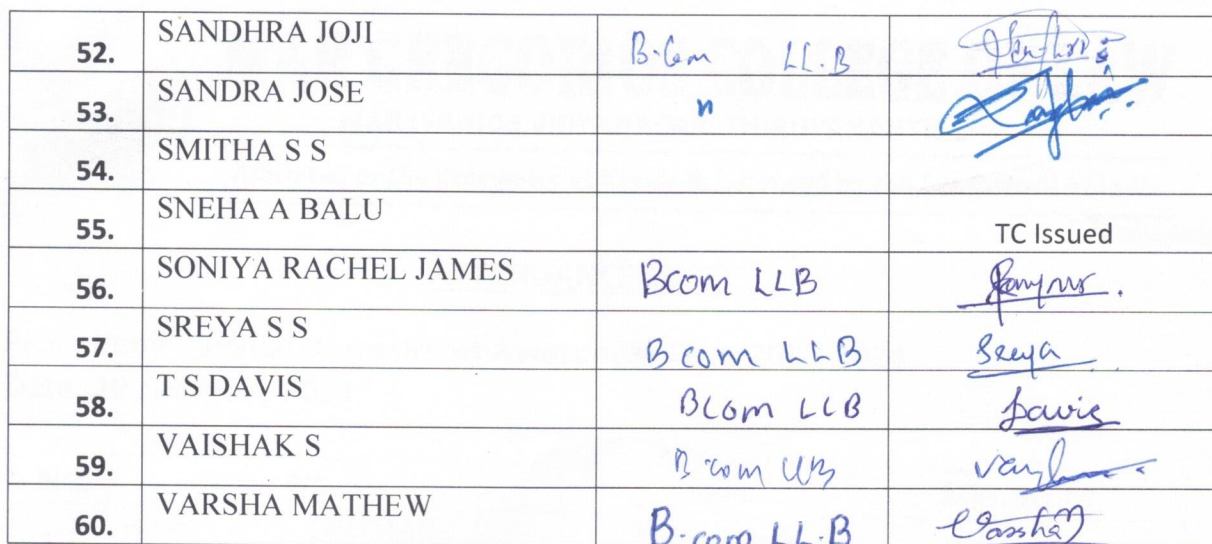 52. SANDHRA JOJI B.Com LL.B
53. SANDRA JOSE "
54. SMITHA S S
55. SNEHA A BALU TC Issued
56. SONIYA RACHEL JAMES Bcom LLB
57. SREYA S S Bcom LLB Sreya
58. T S DAVIS BCom LLB Davis
59. VAISHAK S B com LLB
60. VARSHA MATHEW B.com LL.B Varsha